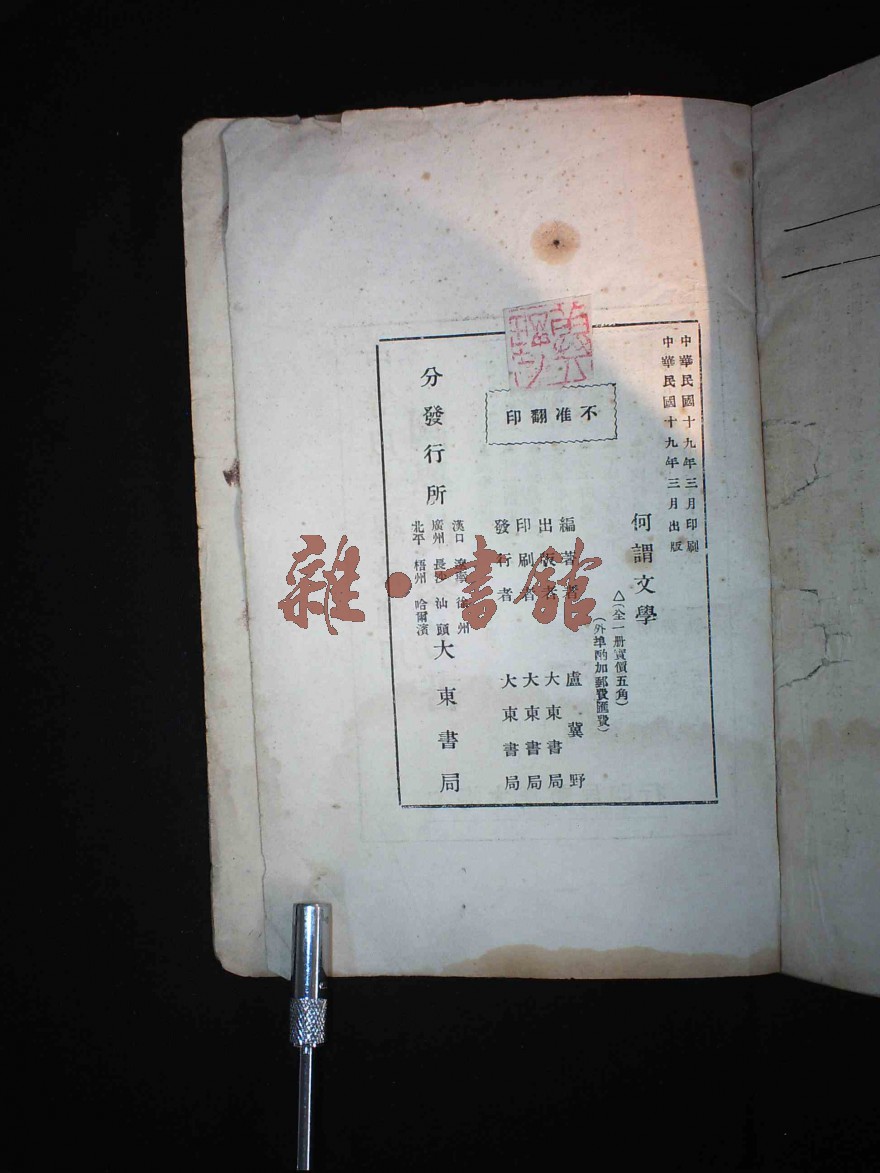 中華民國十九年三月印刷
中華民國十九年三月出版
何謂文學
△(全一册實價五角)
(外埠酌加郵費匯費)
不准翻印
編著者 盧冀野
出版者 大東書局
印刷者 大東書局
發行者 大東書局
分發行所
漢口 遼寧 徐州
廣州 長沙 汕頭
北平 梧州 哈爾濱
大東書局
雜·書館